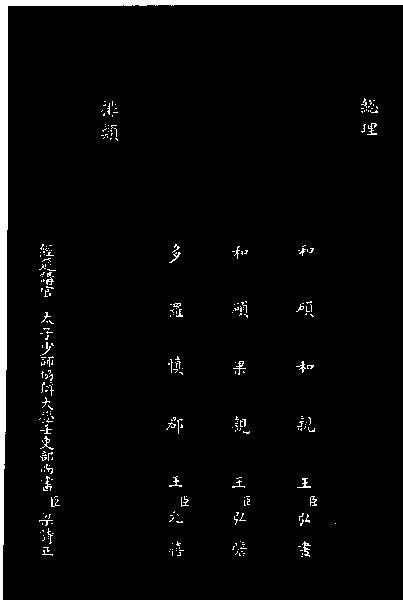 總理
和碩和親王臣弘晝
和碩果親王臣弘瞻
多羅慎郡王臣允禧
排類
經筵講官 太子少師協辦大學士吏部尚書臣梁詩正